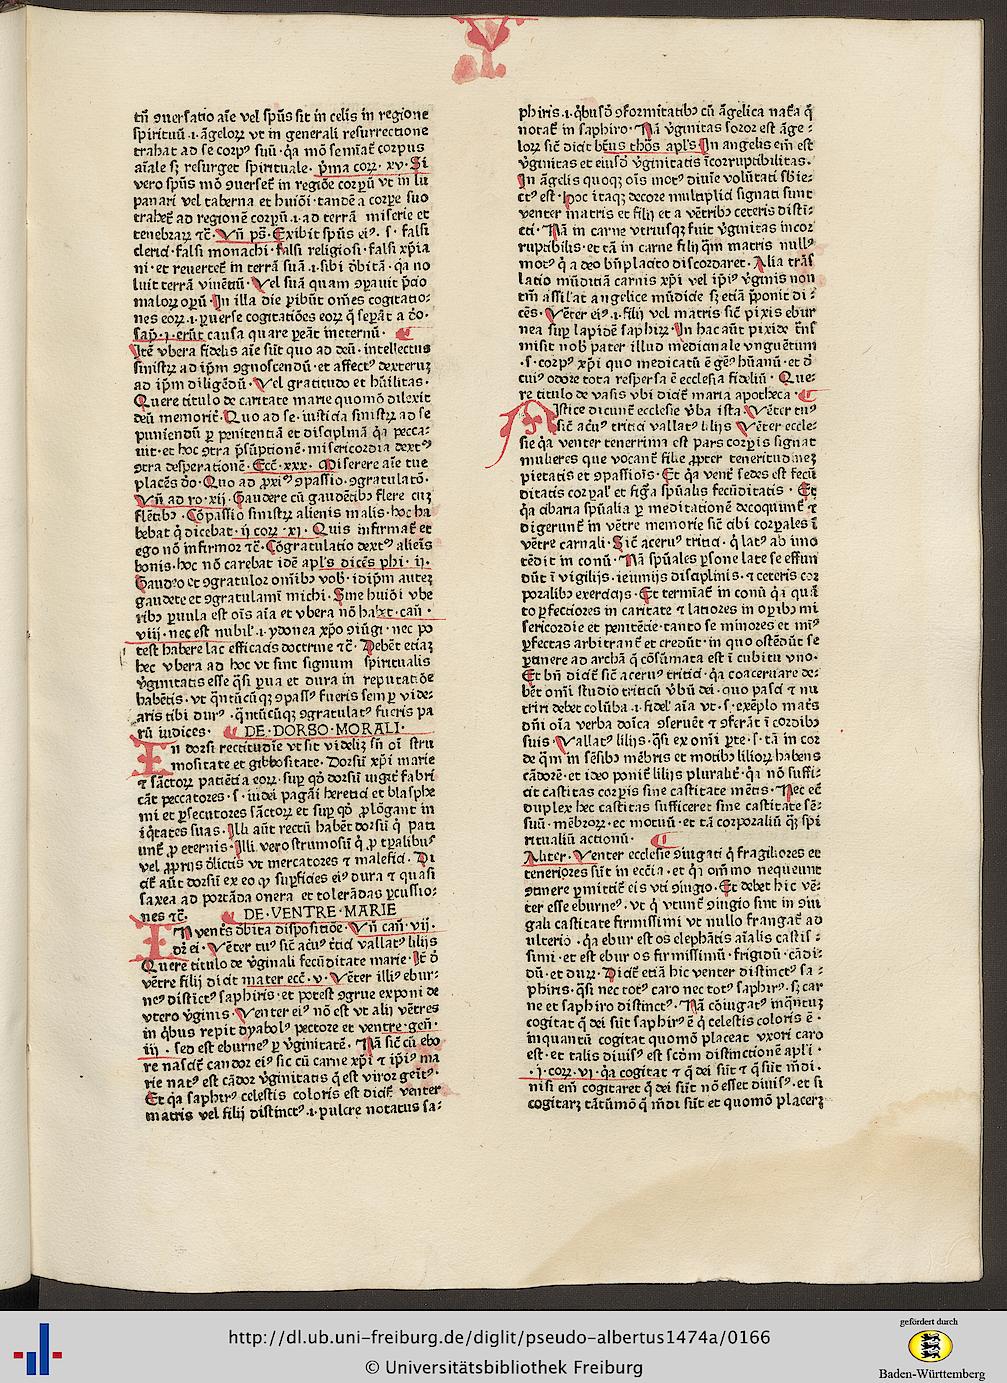 V
tñ ꝯuersatio aīe vel spūs sit in celis in regione
spirituū .i. āgelorꝝ vt in generali resurrectione
trahat ad se corpꝰ suū · q̇a mō semīat̄ corpus
aīale sꝫ resurget spirituale · p̄ma corꝝ · xv · Si
vero spūs mō ꝯuerset̄ in regiōe corpū vt in lu
panari vel taberna et huiōi · tandē a corpe suo
trahet̄ ad regionē corpū .i. ad terrā miserie et
tenebrarꝝ ⁊c̄ · Vñ ps̄ · Exibit spūs eiꝰ · s · falsi
clerici · falsi monachi · falsi religiosi · falsi xp̄ia
ni · et reuertet̄ in terrā suā .i. sibi ꝺ̇bitā · q̇a no
luit terrā viuētiū · Vel suā quam ꝯparuit p̄cio
malorꝝ opū · In illa die ꝑibūt om̄es cogitatio-
nes eorꝝ .i. ꝑuerse cogitatiōes eorꝝ q̄ sepāt a ꝺō ·
sap̄ · j · erūt causa quare ꝑeāt ineternū ·
Itē vbera fidelis aīe sūt quo ad deū · intellectus
sinistrꝝ ad ip̄m ꝯgnoscendū · et affectꝰ dexteruꝫ
ad ip̄m diligēdū · Vel gratitudo et hūilitas ·
Quere titulo de caritate marie quomō dilexit
deū memorit̄ · Quo ad se · iusticia sinistrꝝ ad se
puniendū ꝑ penitentiā et disciplinā q̇a pecca-
uit · et hoc ꝯtra p̄sūptionē · misericordia dextꝰ
ꝯtra desperationē · Eccī · xxx · Miserere aīe tue
placēs ꝺō · Quo ad ꝓxiꝰ ꝯpassio · ꝯgratulatō ·
Vñ ad ro · xij · Gaudere cū gaudētibꝰ flere cuꝫ
flētibꝰ · Cōpassio sinistrꝝ alienis in alis · hoc ha
bebat q̄ dicebat · ij corꝝ · xj · Quis infirmat̄ et
ego nō infirmor ⁊c̄ · Cōgratulatio dextꝰ alieīs
bonis · hoc nō carebat idē apl's dicēs phi · ij ·
Gaudeo et ꝯgratulor om̄ibꝰ vob · idip̄m auteꝫ
gaudete et ꝯgratulamī michi · Sine huiōi vbe
ribꝰ ꝑuula est oīs aīa et vbera nō habꝫt · cañ ·
viij · nec est nubil' .i. ydonea xp̄o ꝯiūgi · nec po
test habere lac efficacis doctrine ⁊c̄ · Debēt etiaꝫ
hec vbera ad hoc vt sint signum spiritualis
v̇ginitatis esse q̇si ꝑua et dura in reputatiōe
habētis · vt q̄ntūcūqꝫ ꝯpassꝰ fueris semꝑ vide-
aris tibi durꝰ · q̄ntūcūqꝫ ꝯgratulatꝰ fueris pa
rū iudices · DE · DORSO · MORALI ·
In dorsi rectitudīe vt sit videliꝫ sñ oī stru
mositate et gibbositate · Dorsū xp̄i marie
⁊ sāctorꝝ patiētia eorꝝ · suꝑ qō dorsū uigit̄ fabri
cāt peccatores · s · iudei pagāi heretici et blasphe
mi et ꝑsecutores sāctorꝝ et suꝑ qō ꝓlōgant in
iq̇tates suas · Illi aūt rectū habēt dorsū q̄ pati
unt̄ ꝓ eternis · Illi vero strumosū q̄ ꝓ tꝑalibus
vel ꝓprijs ꝺ̇lictis vt mercatores ⁊ malefici · Di
cit̄ aūt dorsū ex eo ꝙ suꝑficies eiꝰ dura ⁊ quasi
saxea ad portāda onera et tolerādas ꝑcussio-
nes ⁊c̄ · DE · VENTRE · MARIE
In ventꝭs ꝺ̇bita dispositiōe · Vñ cañ · vij ·
dr̄ ei · Vēter tuꝰ sic̄ acuꝰ tritici vallatꝰ lilijs
Quere titulo de v̇ginali fecūditate marie · It̄ ꝺ̇
vētre filij dicit mater ecc̄ · v · Vēter illiꝰ ebur-
neꝰ distīctꝰ saphiris · et potest ꝯgrue exponi de
vtero v̇ginis · Venter eiꝰ nō est vt alij vētres
in q̇bus repit dyabolꝰ pectore et ventre · geñ ·
iij · sed est eburneꝰ ꝑ v̇ginitatē · Nā sic̄ cū ebo
re nascit̄ candor eiꝰ sic cū carne xp̄i ⁊ ip̄iꝰ ma
rie natꝰ est cādor v̇ginitatis q̄ est viror geītꝰ ·
Et q̇a saphirꝰ celestis coloris est dicit̄ venter
matris vel filij distinctꝰ .i. pulcre notatus sa-
phiris .i. q̇busꝺ̄ ꝯformitatibꝰ cū āgelica nat̄a q̄
notat̄ in saphiro · Nā v̇ginitas soror est āge-
lorꝝ sic̄ dicit btūs thōs apl's · In angelis eīn est
v̇ginitas et eiusꝺ̄ v̇ginitatis īcorruptibilitas ·
In āgelis quoqꝫ oīs motꝰ diuīe volūtati sb̄ie-
ctꝰ est · hoc itaqꝫ decore multiplici signati sunt
venter matris et filij et a vētribꝰ ceteris distī-
cti · Nā in carne vtriusqꝫ fuit v̇ginitas incor
rupibilis · et tā in carne filij q̄m matris nullꝰ
motꝰ q̄ a deo bn̄placito discordaret · Alia trās
latio mūditiā carnis xp̄i vel ip̄iꝰ v̇ginis non
tm̄ assil'at angelice mūdicie sꝫ etiā p̄ponit di-
cēs · Vēter eiꝰ .i. filij vel matris sic̄ pixis ebur
nea suꝑ lapidē saphirꝝ · In hac aūt pixide trn̄s
misit nob̄ pater illud medicinale vnguētum
· s · corpꝰ xp̄i quo medicatū ē gēꝰ hūanū · et ꝺ̇
cuiꝰ odore tota respersa ē ecclesia fideliū · Que-
re titulo de vasis vbi dicit̄ maria apotheca ·
Mistice dicunt̄ ecclesie v̇ba ista · Vēter tuꝰ
sic̄ acuꝰ tritici vallatꝰ lilijs · Vēter eccle-
sie q̇a venter tenerrima est pars corpis signat
mulieres que vocant̄ filie ꝓpter teneritudineꝫ
pietatis et ꝯpassiōis · Et q̇a vent̄ sedes est fecū
ditatis corpal' et fig̃a spūalis fecūditatis · Et
q̇a cibaria spūalia ꝑ meditationē decoquunt̄ ⁊
digerunt̄ in vētre memorie sic̄ cibi corpales ī
vētre carnali · Sic̄ aceruꝰ tritici · q̄ latꝰ ab imo
tēdit in conū · Nā spūales ꝑsone late se effun
dūt ī vigilijs · ieiunijs disciplinis · ⁊ ceteris cor
poralibꝰ exercicijs · Et termīat̄ in conū q̇a quā
to ꝑfectiores in caritate ⁊ latiores in opibꝰ mi
sericordie et penitētie · tanto se minores et imꝑ
ꝑfectas arbitrant̄ et credūt · in quo ostēdūt se
ꝑtinere ad archā q̄ cōsūmata est ī cubitu vno ·
Et bn̄ dicit̄ sic̄ aceruꝰ tritici · q̇a coaceruare de-
bēt om̄i studio triticū v̇bū dei · quo pasci ⁊ nu
triri debet colūba .i. fidel' aīa vt · s · exēplo matꝭs
dn̄i oīa verba doīca ꝯseruēt ⁊ ꝯferāt ī cordibꝰ
suis · Vallatꝰ lilijs · q̇si ex om̄i ꝑte · s · tā in cor
de q̄m in sēsibꝰ mēbris et motibꝰ liliorꝝ habens
cādorē · et ideo ponit̄ lilijs pluralit̄ · q̇a nō suffi-
cit castitas corpis sine castitate mētis · Nec eē
duplex hec castitas sufficeret sine castitate sē-
suū · mēbrorꝝ · ec motuū · et tā corporaliū q̄ꝫ spi
ritualiū actionū ·
Aliter · Venter ecclesie ꝯiugati q̄ fragiliores et
teneriores sūt in ecc̄ia · et q̇a om̄īmo nequeunt
ꝯtinere ꝑmittit̄ eis vti ꝯiugio · Et debet hic vē-
ter esse eburneꝰ · vt q̄ vtunt̄ ꝯiugio sint in ꝯiu
gali castitate firmissimi vt nullo frangat̄ ad
ulterio · q̇a ebur est os elephātis aīalis castis-
simi · et est ebur os firmissimū · frigidū · cādi-
dū · et durꝝ · Dicit̄ etiā hic venter distinctꝰ sa-
phiris · q̇si nec totꝰ caro nec totꝰ saphirꝰ · sꝫ car
ne et saphiro distinctꝰ · Nā cōiugatꝰ inq̄ntuꝫ
cogitat q̄ dei sūt saphirꝰ ē q̄ celestis coloris ē ·
inquantū cogitat quomō placeat vxori caro
est · et talis diuisꝰ est scd̄m distinctionē apl'i ·
· j · corꝝ · vj · q̇a cogitat ⁊ q̄ dei sūt ⁊ q̄ sūt mūdi ·
nisi eīn cogitaret q̄ dei sūt nō esset diuisꝰ · et si
cogitarꝫ tātūmō q̄ mūdi sūt et quomō placerꝫ
http://dl.ub.uni-freiburg.de/diglit/pseudo-albertus1474a/0166
© Universitätsbibliothek Freiburg
gefördert durch
Baden-Württemberg